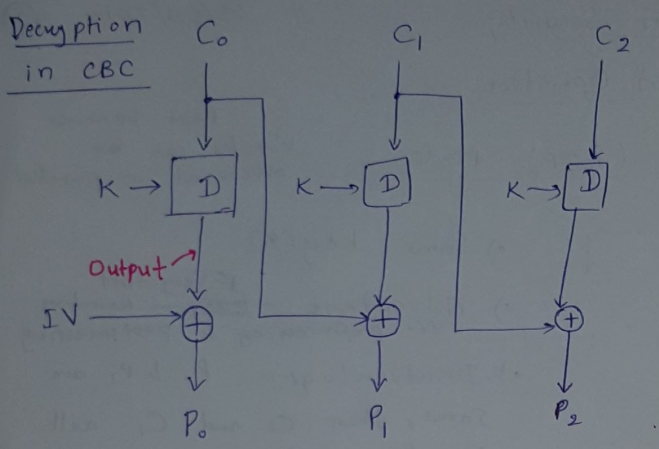 Decryption
in CBC
C₀ C₁ C₂
K → D K → D K → D
Output
IV
P₀ P₁ P₂